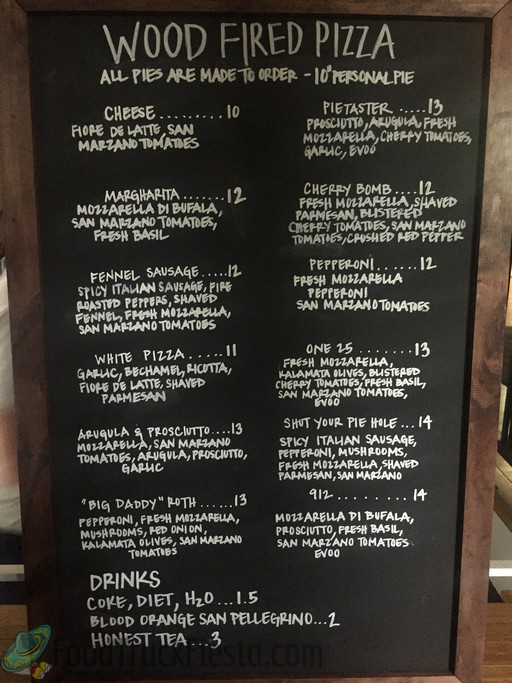 WOOD FIRED PIZZA
ALL PIES ARE MADE TO ORDER - 10" PERSONAL PIE
CHEESE.........10
FIORE DE LATTE, SAN
MARZANO TOMATOES
MARGHARITA.......12
MOZZARELLA DI BUFALA,
SAN MARZANO TOMATOES,
FRESH BASIL
FENNEL SAUSAGE.....12
SPICY ITALIAN SAUSAGE, FIRE
ROASTED PEPPERS, SHAVED
FENNEL, FRESH MOZZARELLA,
SAN MARZANO TOMATOES
WHITE PIZZA.....11
GARLIC, BECHAMEL, RICOTTA,
FIORE DE LATTE, SHAVED
PARMESAN
ARUGULA & PROSCIUTTO....13
MOZZARELLA, SAN MARZANO
TOMATOES, ARUGULA, PROSCIUTTO,
GARLIC
"BIG DADDY" ROTH......13
PEPPERONI, FRESH MOZZARELLA,
MUSHROOMS, RED ONION,
KALAMATA OLIVES, SAN MARZANO
TOMATOES
PIETASTER.....13
PROSCIUTTO, ARUGULA, FRESH
MOZZARELLA, CHERRY TOMATOES,
GARLIC, EVOO
CHERRY BOMB....12
FRESH MOZZARELLA, SHAVED
PARMESAN, BLISTERED
CHERRY TOMATOES, SAN MARZANO
TOMATOES, CRUSHED RED PEPPER
PEPPERONI......12
FRESH MOZZARELLA
PEPPERONI
SAN MARZANO TOMATOES
ONE 25........13
FRESH MOZZARELLA,
KALAMATA OLIVES, BLISTERED
CHERRY TOMATOES, FRESH BASIL,
SAN MARZANO TOMATOES,
EVOO
SHUT YOUR PIE HOLE...14
SPICY ITALIAN SAUSAGE,
PEPPERONI, MUSHROOMS,
FRESH MOZZARELLA, SHAVED
PARMESAN, SAN MARZANO
912........14
MOZZARELLA DI BUFALA,
PROSCIUTTO, FRESH BASIL,
SAN MARZANO TOMATOES
EVOO
DRINKS
COKE, DIET, H2O...1.5
BLOOD ORANGE SAN PELLEGRINO...2
HONEST TEA...3
FoodTruckFiesta.com